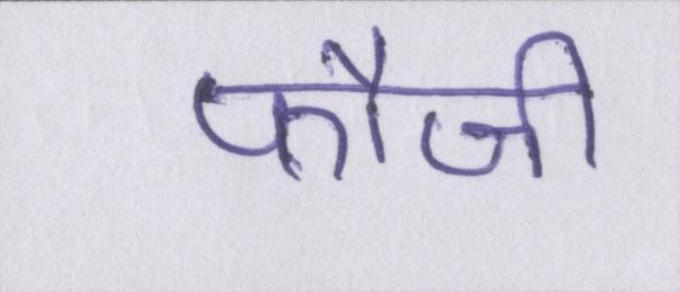 फौजी